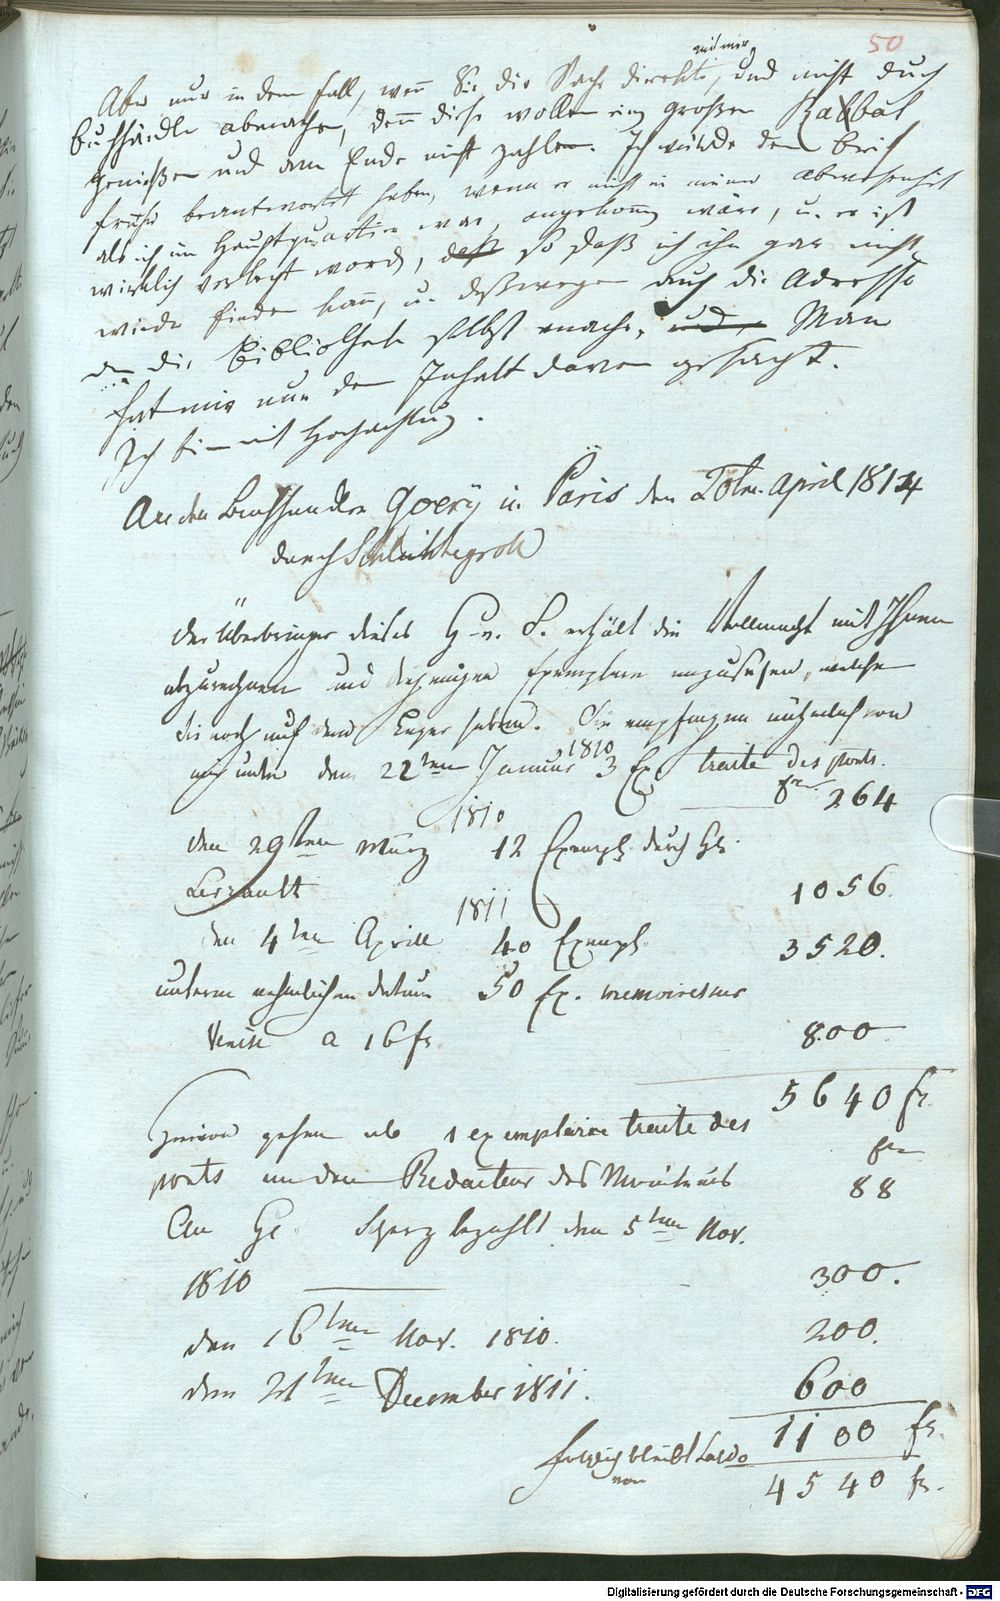 50
mit mir
Aber nur in dem Fall, wenn Sie die Sache direkte, und nicht durch
Buchhändler abmachen, denn diese wollen ein großen Rabbat
genießen und am Ende nicht zahlen. Ich würde den Brief
früher beantwortet haben, wenn er nicht in meiner Abwesenheit
als ich im Hauptquartier war, angekommen wäre, u. er ist
wirklich verlegt worden, daß so daß ich ihn gar nicht
wieder finden kann, u. deßwegen auch die Adresse
an die Bibliothek selbst mache, und Man
hat mir nur den Inhalt davon gesagt.
Ich bin mit Hochachtung.
An den Buchhändler Goery in Paris den April 1814
durch Schlichtegroll
Der Überbringer dieses H. v. S. erhält die Vollmacht mit Ihnen
abzurechnen und diejenigen Exemplare anzusehen, welche
Sie noch auf dem Lager haben. Sie empfingen nähmlich von
mir unter dem 22ten Januar 1810 3 Ex. traite des ponts.
fr. 264
1810
den 29ten März 12 Exempl. durch H.
Levrault 1056.
1811
den 4ten Aprill 40 Exempl. 3520.
unterm nehmlichen datum 50 Ex. memoire sur
Venise a 16 fr. 800
5640 fr.
Hievon gehen ab 1 exemplaire traite des
ponts an den Redacteur des Moniteurs fr. 88
An H. Scherz bezahlt den 5ten Nov.
1810 300.
den 16ten Nov. 1810. 200.
den 21ten December 1811. 600
1100 fr.
folglich bleibt Saldo
von 4540 fr.
Digitalisierung gefördert durch die Deutsche Forschungsgemeinschaft - DFG